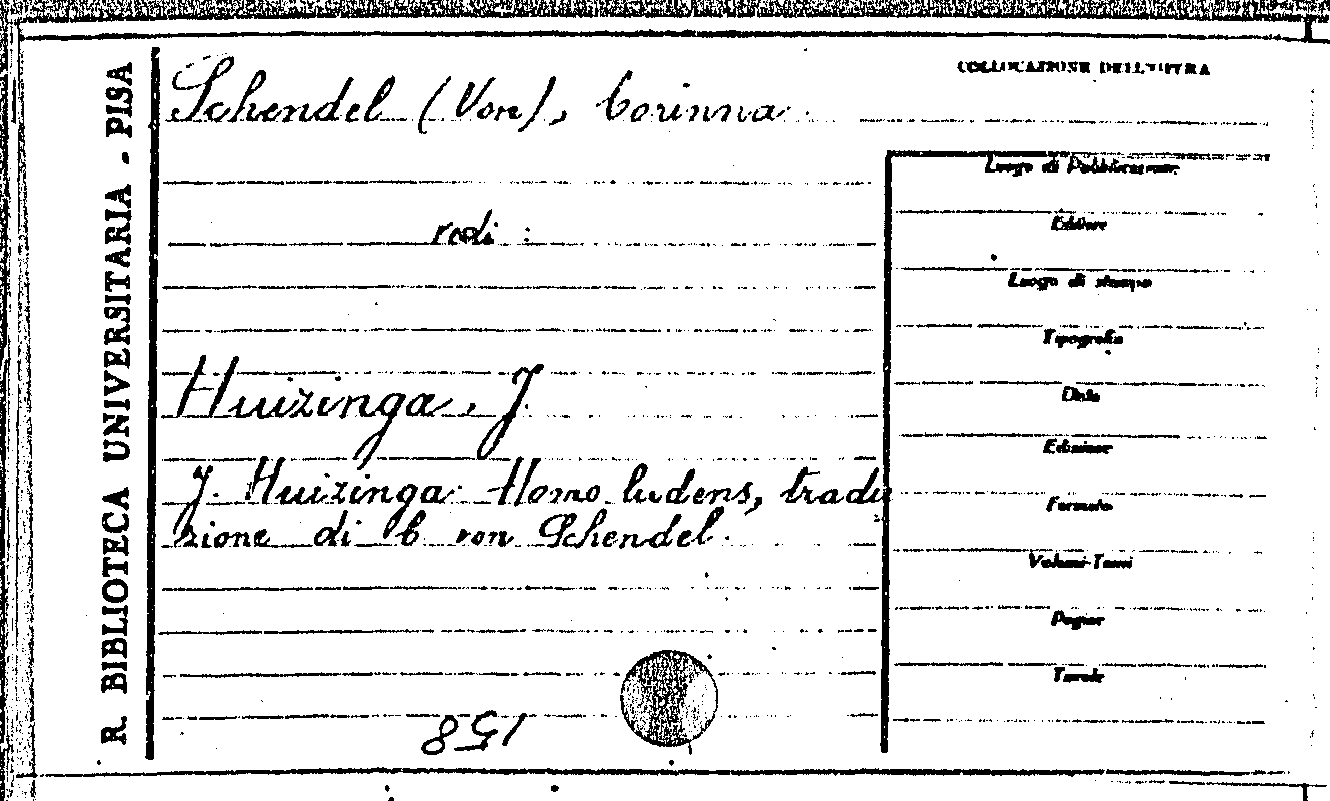 R. BIBLIOTECA UNIVERSITARIA - PISA
Schendel (Von), Corinna
vedi :
Huizinga, J.
J. Huizinga. Homo ludens, tradu
zione di C von Schendel.
COLLOCAZIONE DELL'OPERA
Luogo di Pubblicazione
Editore
Luogo di stampa
Tipografia
Data
Edizione
Formato
Volumi-Tomi
Pagine
Tavole
158